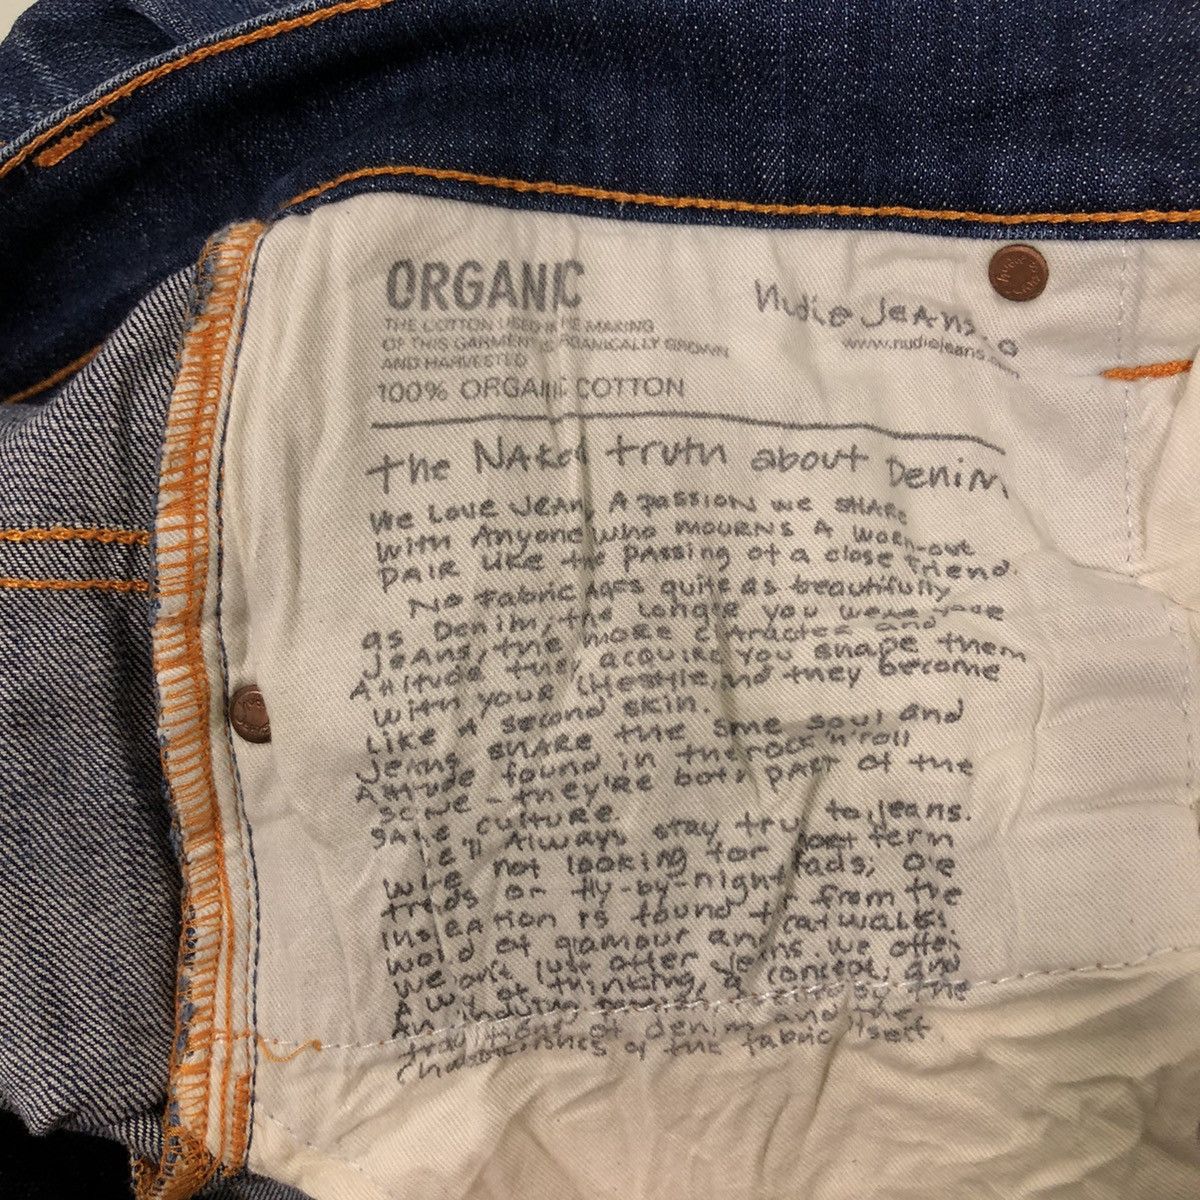 ORGANIC
THE COTTON USED IN THE MAKING
OF THIS GARMENT IS ORGANICALLY GROWN
AND HARVESTED
100% ORGANIC COTTON
Nudie Jeans.co
www.nudiejeans.com
The NAKed truth about Denim
We Love Jean A passion we SHARe
with Anyone who mourns A worn-out
pair like the passing of a close friend.
No Fabric Ages quite as beautifully
as Denim, the longer you wear your
jeans, the more character and
Attitude they acquire You shape them
with your lifestyle, and they become
Like A second skin.
Jeans share the same soul and
Attitude found in the rock'n'roll
scene - they're both part of the
same culture.
We'll Always stay true to jeans.
We're not looking for short term
trends or fly-by-night fads; our
inspiration is found far from the
world of glamour and catwalks.
We don't just offer jeans. we offer
A way of thinking, a concept, and
traditions of denim and the
characteristics of the fabric itself.